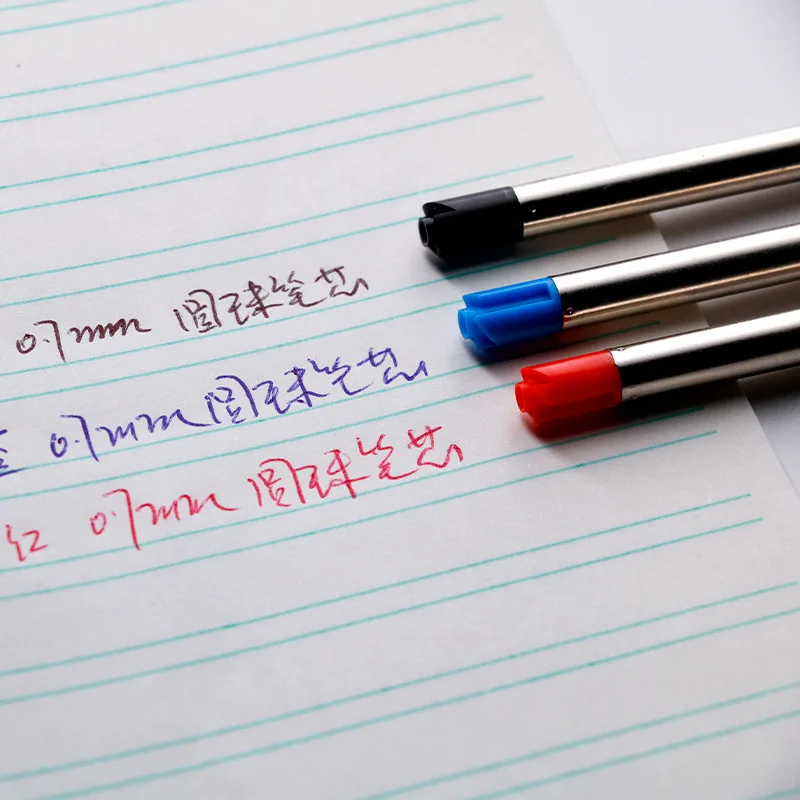 0.7mm 圆珠笔芯
0.7mm 圆珠笔芯
红 0.7mm 圆珠笔芯